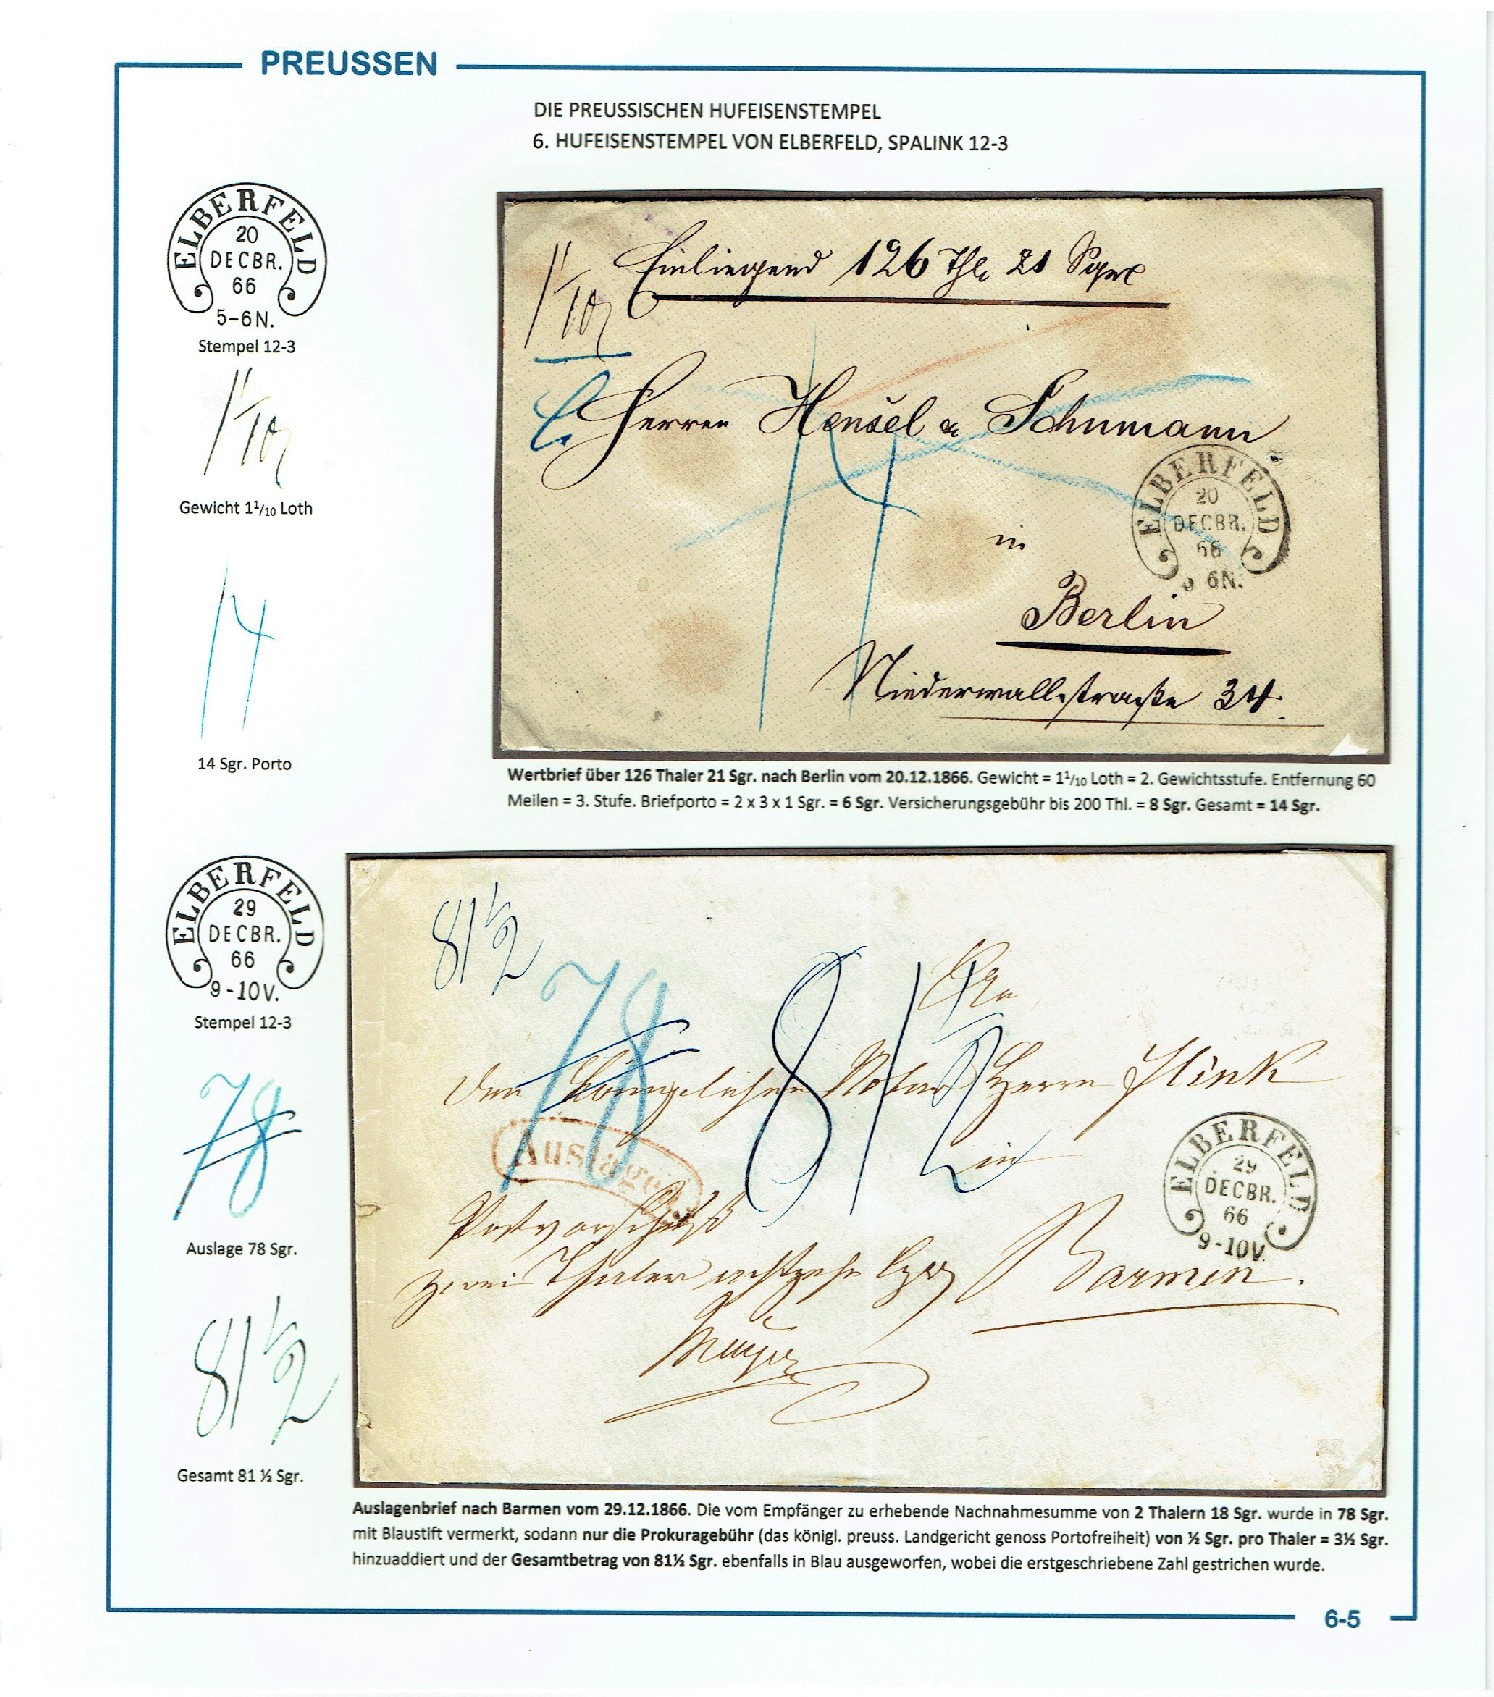 PREUSSEN
DIE PREUSSISCHEN HUFEISENSTEMPEL
6. HUFEISENSTEMPEL VON ELBERFELD, SPALINK 12-3
ELBERFELD
20
DECBR.
66
5-6N.
Stempel 12-3
Gewicht 1 1/10 Loth
14
14 Sgr. Porto
Einliegend 126 Thlr 21 Sgr
Herren Hensel & Schumann
14
in
Berlin
Niederwallstraße 34.
ELBERFELD
20
DECBR.
66
6N.
Wertbrief über 126 Thaler 21 Sgr. nach Berlin vom 20.12.1866. Gewicht = 1 1/10 Loth = 2. Gewichtsstufe. Entfernung 60
Meilen = 3. Stufe. Briefporto = 2 x 3 x 1 Sgr. = 6 Sgr. Versicherungsgebühr bis 200 Thl. = 8 Sgr. Gesamt = 14 Sgr.
ELBERFELD
29
DECBR.
66
9-10V.
Stempel 12-3
78
Auslage 78 Sgr.
81 1/2
Gesamt 81 ½ Sgr.
81 1/2
78
81 1/2
An
den Königlichen Notar Herrn Flink
Auslagen
in
Postvorschuß
zwei Thaler achtzehn Sgr
Barmen.
ELBERFELD
29
DECBR.
66
9-10V.
Auslagenbrief nach Barmen vom 29.12.1866. Die vom Empfänger zu erhebende Nachnahmesumme von 2 Thalern 18 Sgr. wurde in 78 Sgr.
mit Blaustift vermerkt, sodann nur die Prokuragebühr (das königl. preuss. Landgericht genoss Portofreiheit) von ½ Sgr. pro Thaler = 3½ Sgr.
hinzuaddiert und der Gesamtbetrag von 81½ Sgr. ebenfalls in Blau ausgeworfen, wobei die erstgeschriebene Zahl gestrichen wurde.
6-5